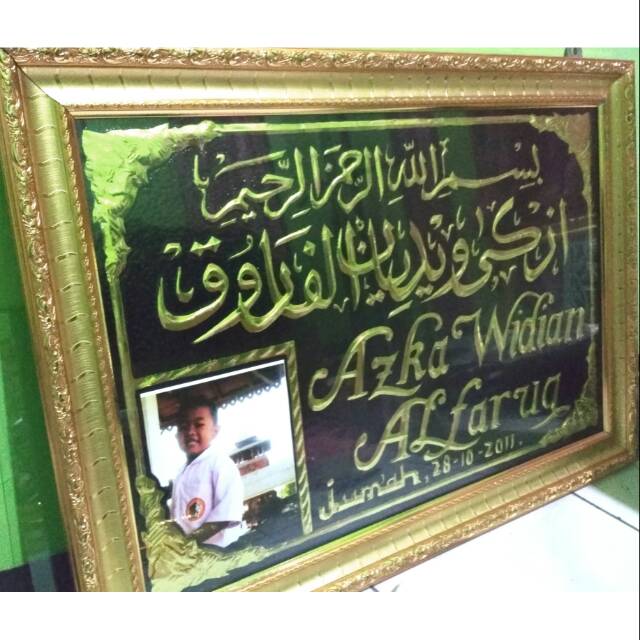 بِسْمِ اللهِ الرَّحْمَنِ الرَّحِيْمِ
ازكى ويديان الفاروق
Azka Widian
ALfaruq
Jum'ah, 28-10-2011.